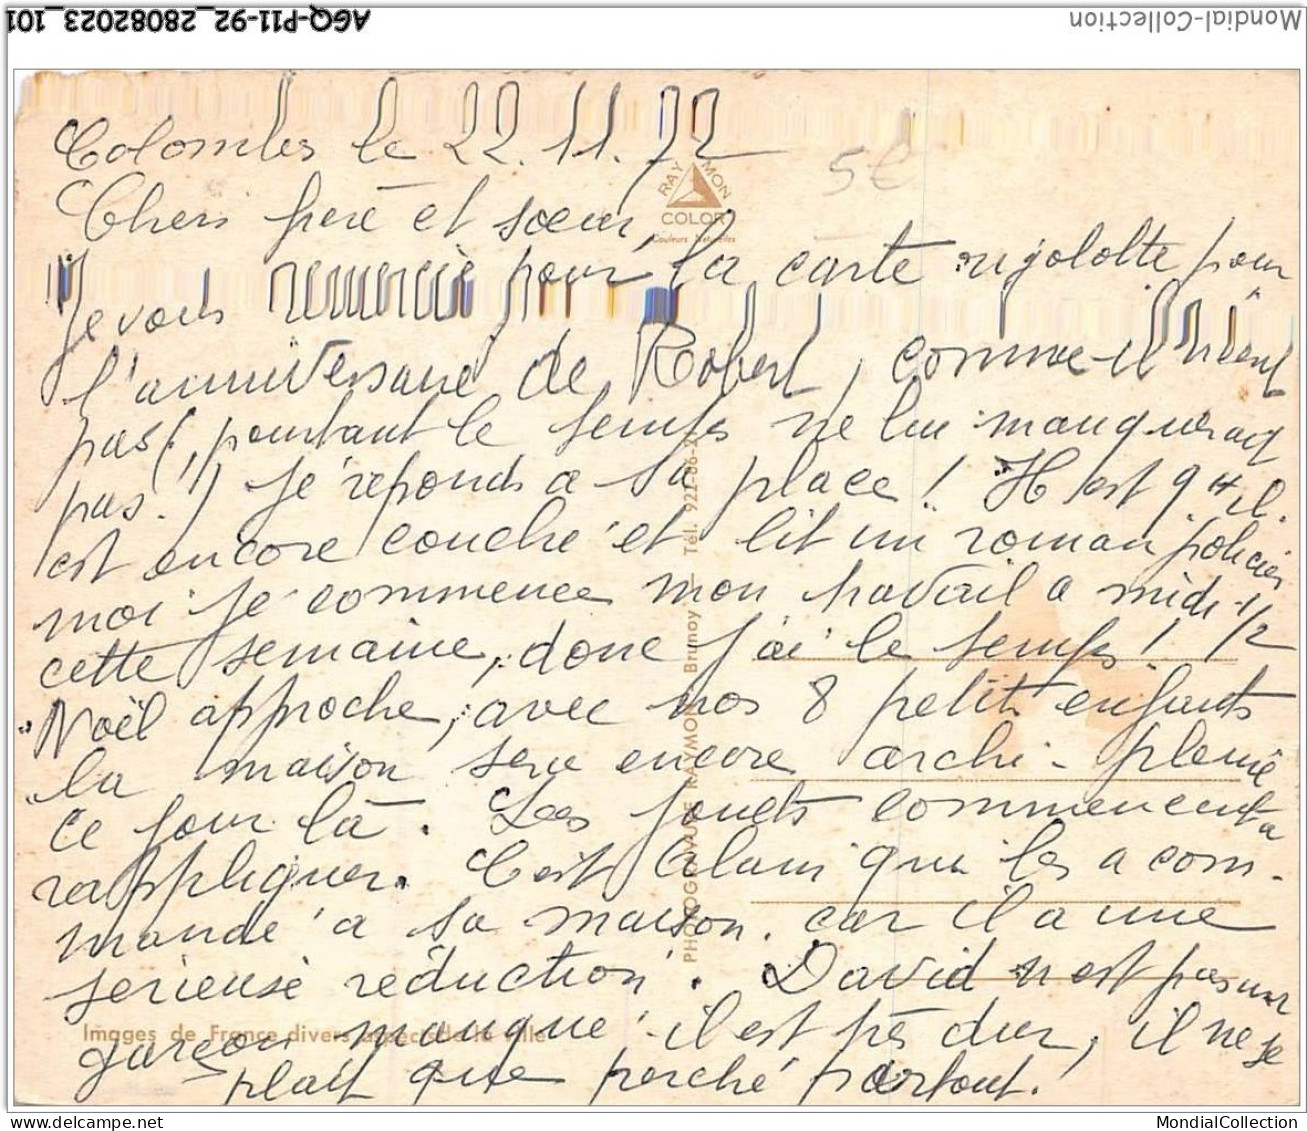 Mondial-Collection
AGQ-P11-92_28082023_101
Colombes le 22.11.72
5€
RAYMON COLOR
Couleurs Naturelles
Chers frère et sœur,
Je vous remercie pour la carte rigolotte pour
l'anniversaire de Robert, comme il n'écrit
pas (, pourtant le temps ne lui manquerait
pas!) je réponds à sa place! Il est 9h il
est encore couché et lit un roman policier
moi je commence mon travail à midi 1/2
cette semaine, donc j'ai le temps!
Noël approche, avec nos 8 petits enfants
la maison sera encore archi-pleine
ce jour là. Les jouets commencent à
rappliquer. C'est Alain qui les a com-
mandé à sa maison. car il a une
sérieuse réduction. David n'est pas un
garçon manqué il est très dur, il ne se
plait que perché partout!
Images de France divers aspects de la ville
PHOTOGRAVURE RAYMON Brunoy — Tél. 922-06-
MondialCollection